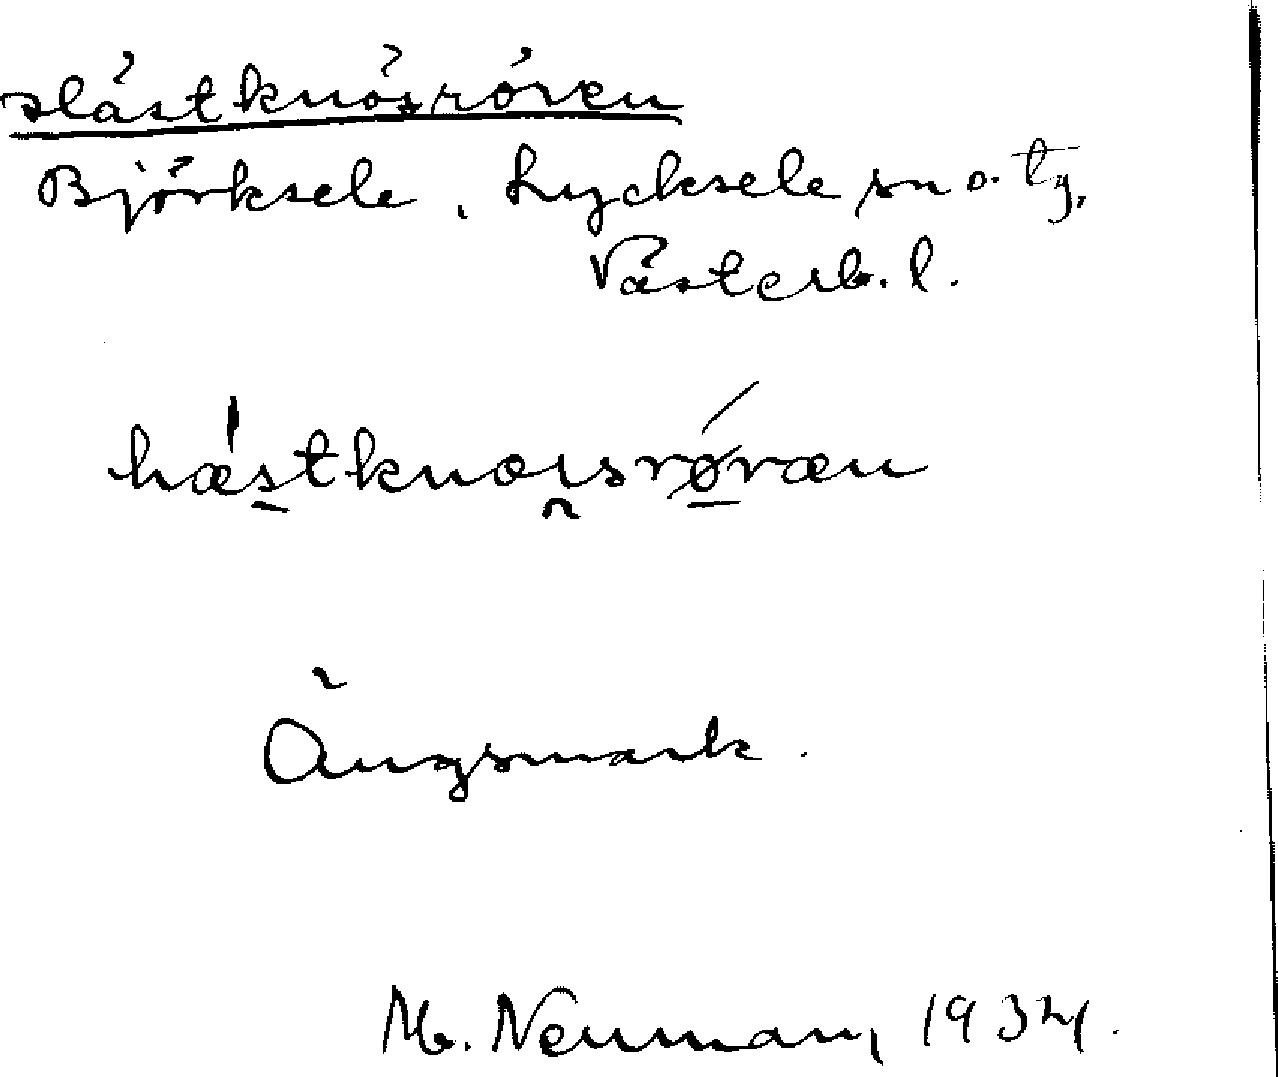 Hästknösröven
Björksele, Lycksele sn o. tg,
Västerb. l.
Ängsmark.
M. Neuman, 1934.